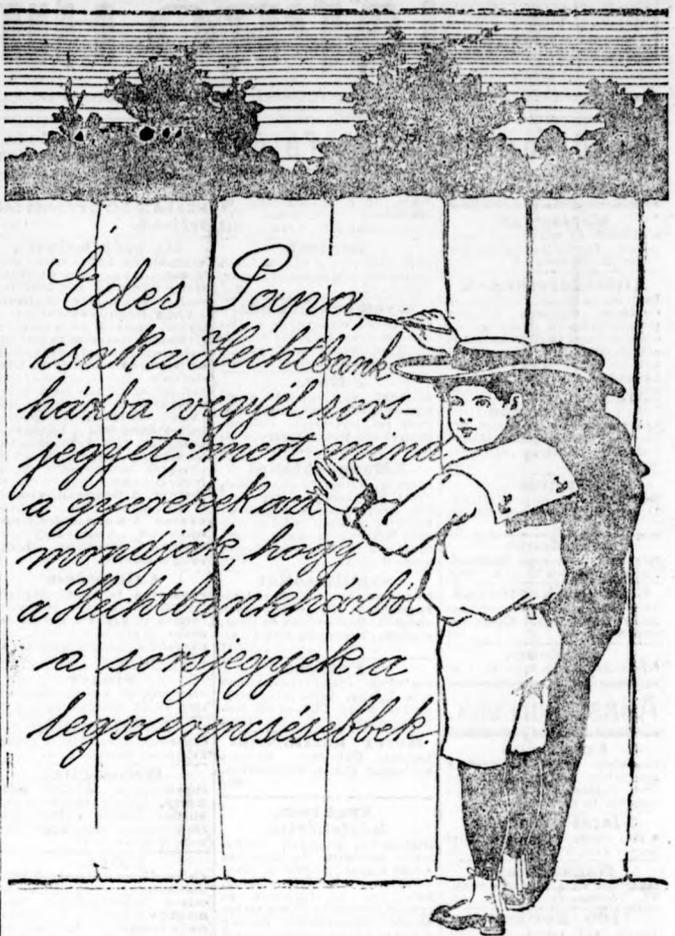 Édes Papa,
csak a Hechtbank
házba vegyél sors-
jegyet mert mind
a gyerekek azt
mondják, hogy
a Hechtbankházból
a sorsjegyek a
legszerencsésebbek.